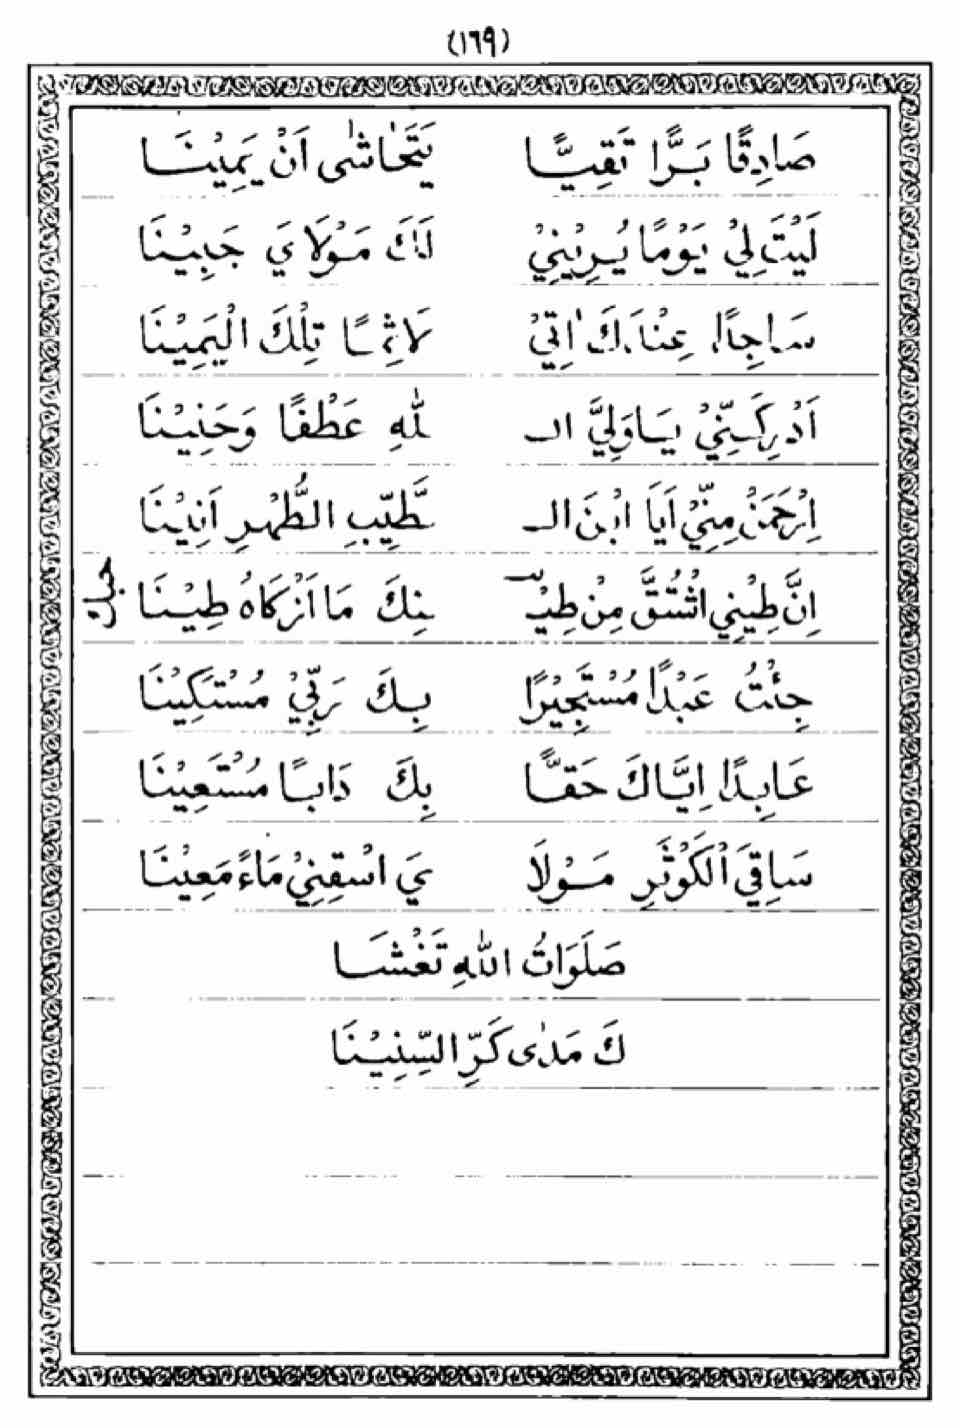 (١٦٩)
صَادِقًا بَرًّا تَقِيًّا يَتَحَاشٰى اَنْ يَمِيْنَا
لَيْتَ لِيْ يَوْمًا يُرِيْنِيْ لَكَ مَوْلَايَ جَبِيْنَا
سَاجِدًا عِنْدَكَ اٰتِيْ لَاثِمًا تِلْكَ الْيَمِيْنَا
اَدْرِكَنِّيْ يَاوَلِيَّ الـ لّٰهِ عَطْفًا وَحَنِيْنَا
اِرْحَمَنْ مِنِّيْ اَيَا ابْنَ الـ ـطَّيِّبِ الطُّهْرِ اَنِيْنَا
اِنَّ طِيْنِي اشْتُقَّ مِنْ طِيْـ ـنِكَ مَا اَزْكَاهُ طِيْنَا
جِئْتُ عَبْدًا مُسْتَجِيْرًا بِكَ رَبِّيْ مُسْتَكِيْنَا
عَابِدًا اِيَّاكَ حَقًّا بِكَ دَابًا مُسْتَعِيْنَا
سَاقِيَ الْكَوْثَرِ مَوْلَا يَ اسْقِنِيْ مَاءً مَعِيْنَا
صَلَوَاتُ اللّٰهِ تَغْشَا
كَ مَدٰى كَرِّ السِّنِيْنَا